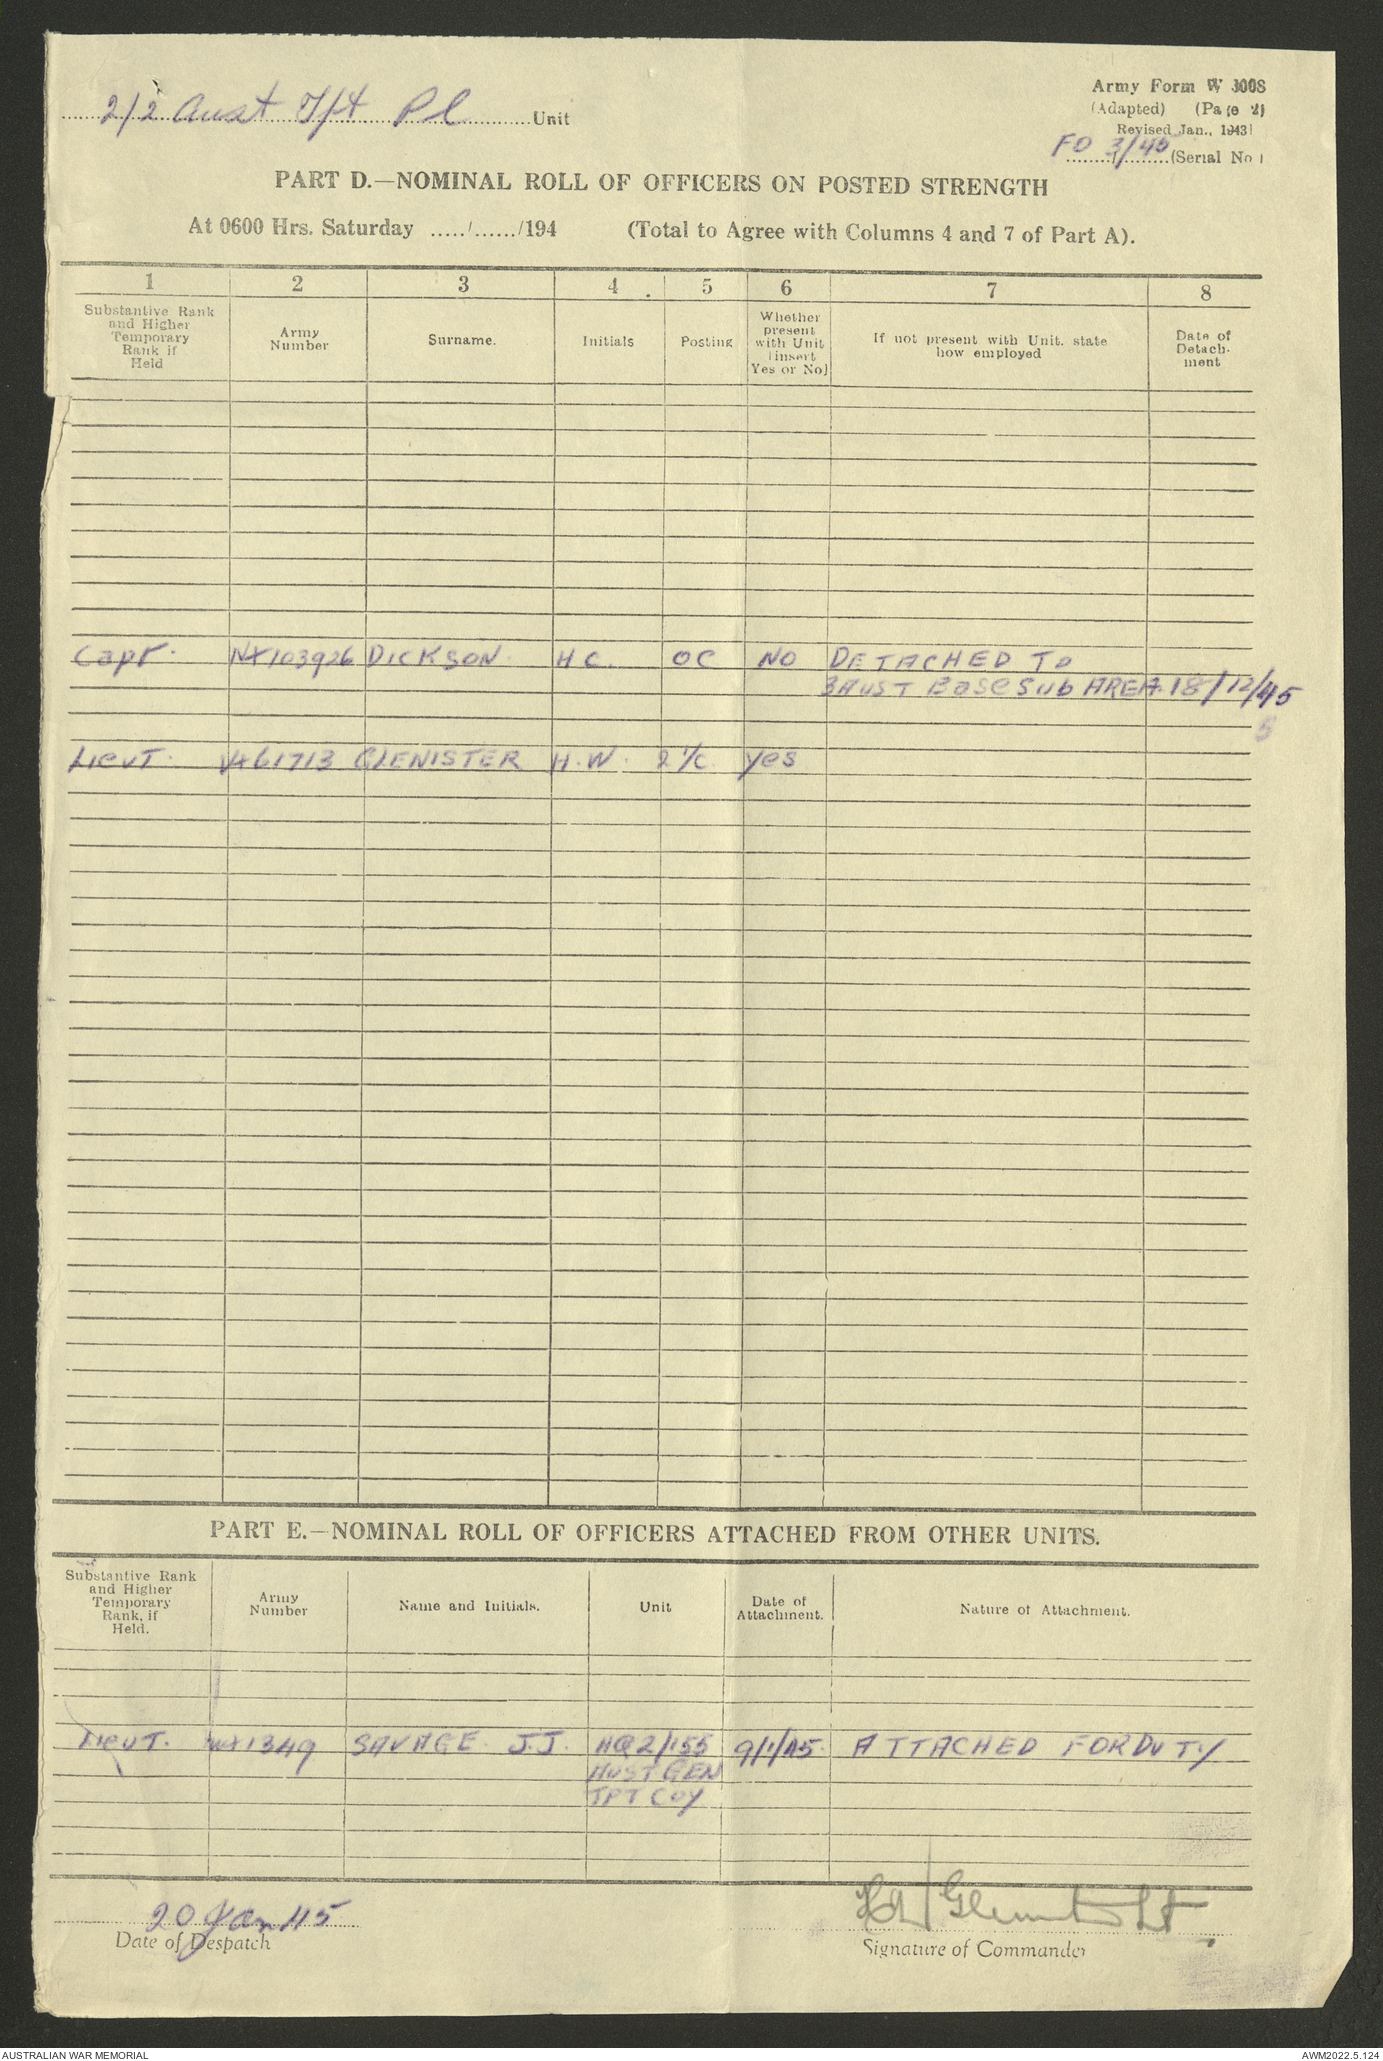 Army Form W 3008
2/2 Aust Tpt Pl Unit
(Adapted) (Page 2)
Revised Jan., 1943
FO 3/45 (Serial No)
PART D.—NOMINAL ROLL OF OFFICERS ON POSTED STRENGTH
At 0600 Hrs. Saturday ...../....../194 (Total to Agree with Columns 4 and 7 of Part A).
1 2 3 4 5 6 7 8
Substantive Rank
and Higher
Temporary
Rank if
Held
Army
Number
Surname.
Initials
Posting
Whether
present
with Unit
(insert
Yes or No)
If not present with Unit. state
how employed
Date of
Detach-
ment
Capt. NX103926 DICKSON. H C. OC NO DETACHED TO
3 AUST Base Sub AREA. 18/12/45
5
Lieut. VX61713 GLENISTER H.W. 2 I/C. yes
PART E.—NOMINAL ROLL OF OFFICERS ATTACHED FROM OTHER UNITS.
Substantive Rank
and Higher
Temporary
Rank, if
Held.
Army
Number
Name and Initials.
Unit
Date of
Attachment.
Nature of Attachment.
Lieut. WX1349 SAVAGE J.J. HQ 2/155 9/1/45. ATTACHED FOR DUTY
AUST GEN
TPT COY
20 Jan 45
Date of Despatch
HW Glenister Lt
Signature of Commander
AUSTRALIAN WAR MEMORIAL
AWM2022.5.124